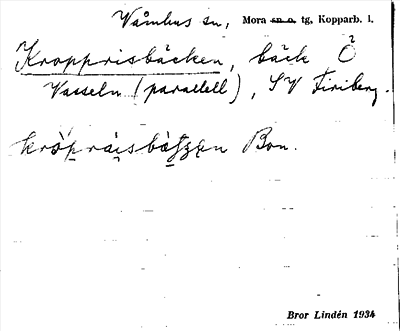 Våmhus sn, Mora sn o. tg, Kopparb. l.
Kropprisbäcken, bäck Ö
Vasseln (parallell), SV Firiberg.
Bon.
Bror Lindén 1934